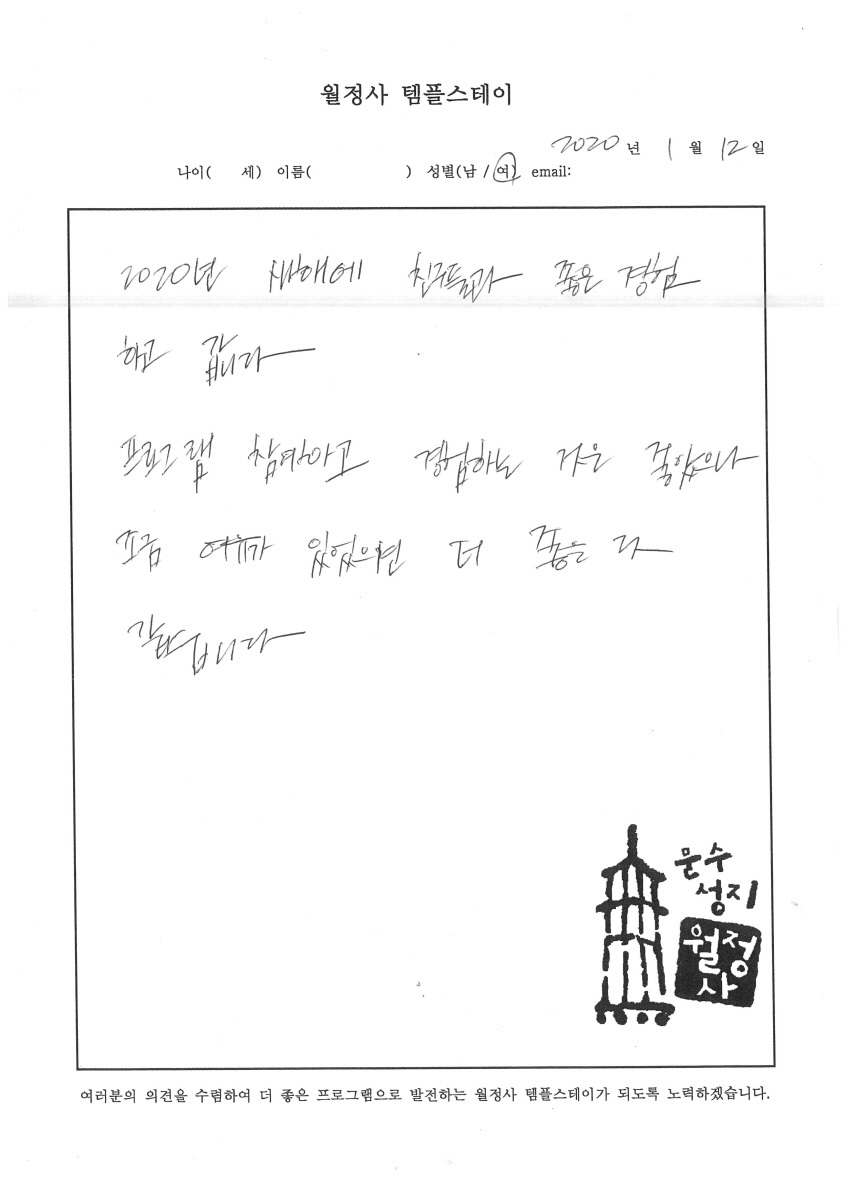 월정사 템플스테이
2020년 1월 12일
나이( 세) 이름( ) 성별(남 / 여) email:
2020년 새해에 친구들과 좋은 경험
하고 갑니다
프로그램 참여하고 경험하는 것은 좋았으나
조금 여유가 있었으면 더 좋을 거
같습니다
문수
성지
월정
사
여러분의 의견을 수렴하여 더 좋은 프로그램으로 발전하는 월정사 템플스테이가 되도록 노력하겠습니다.